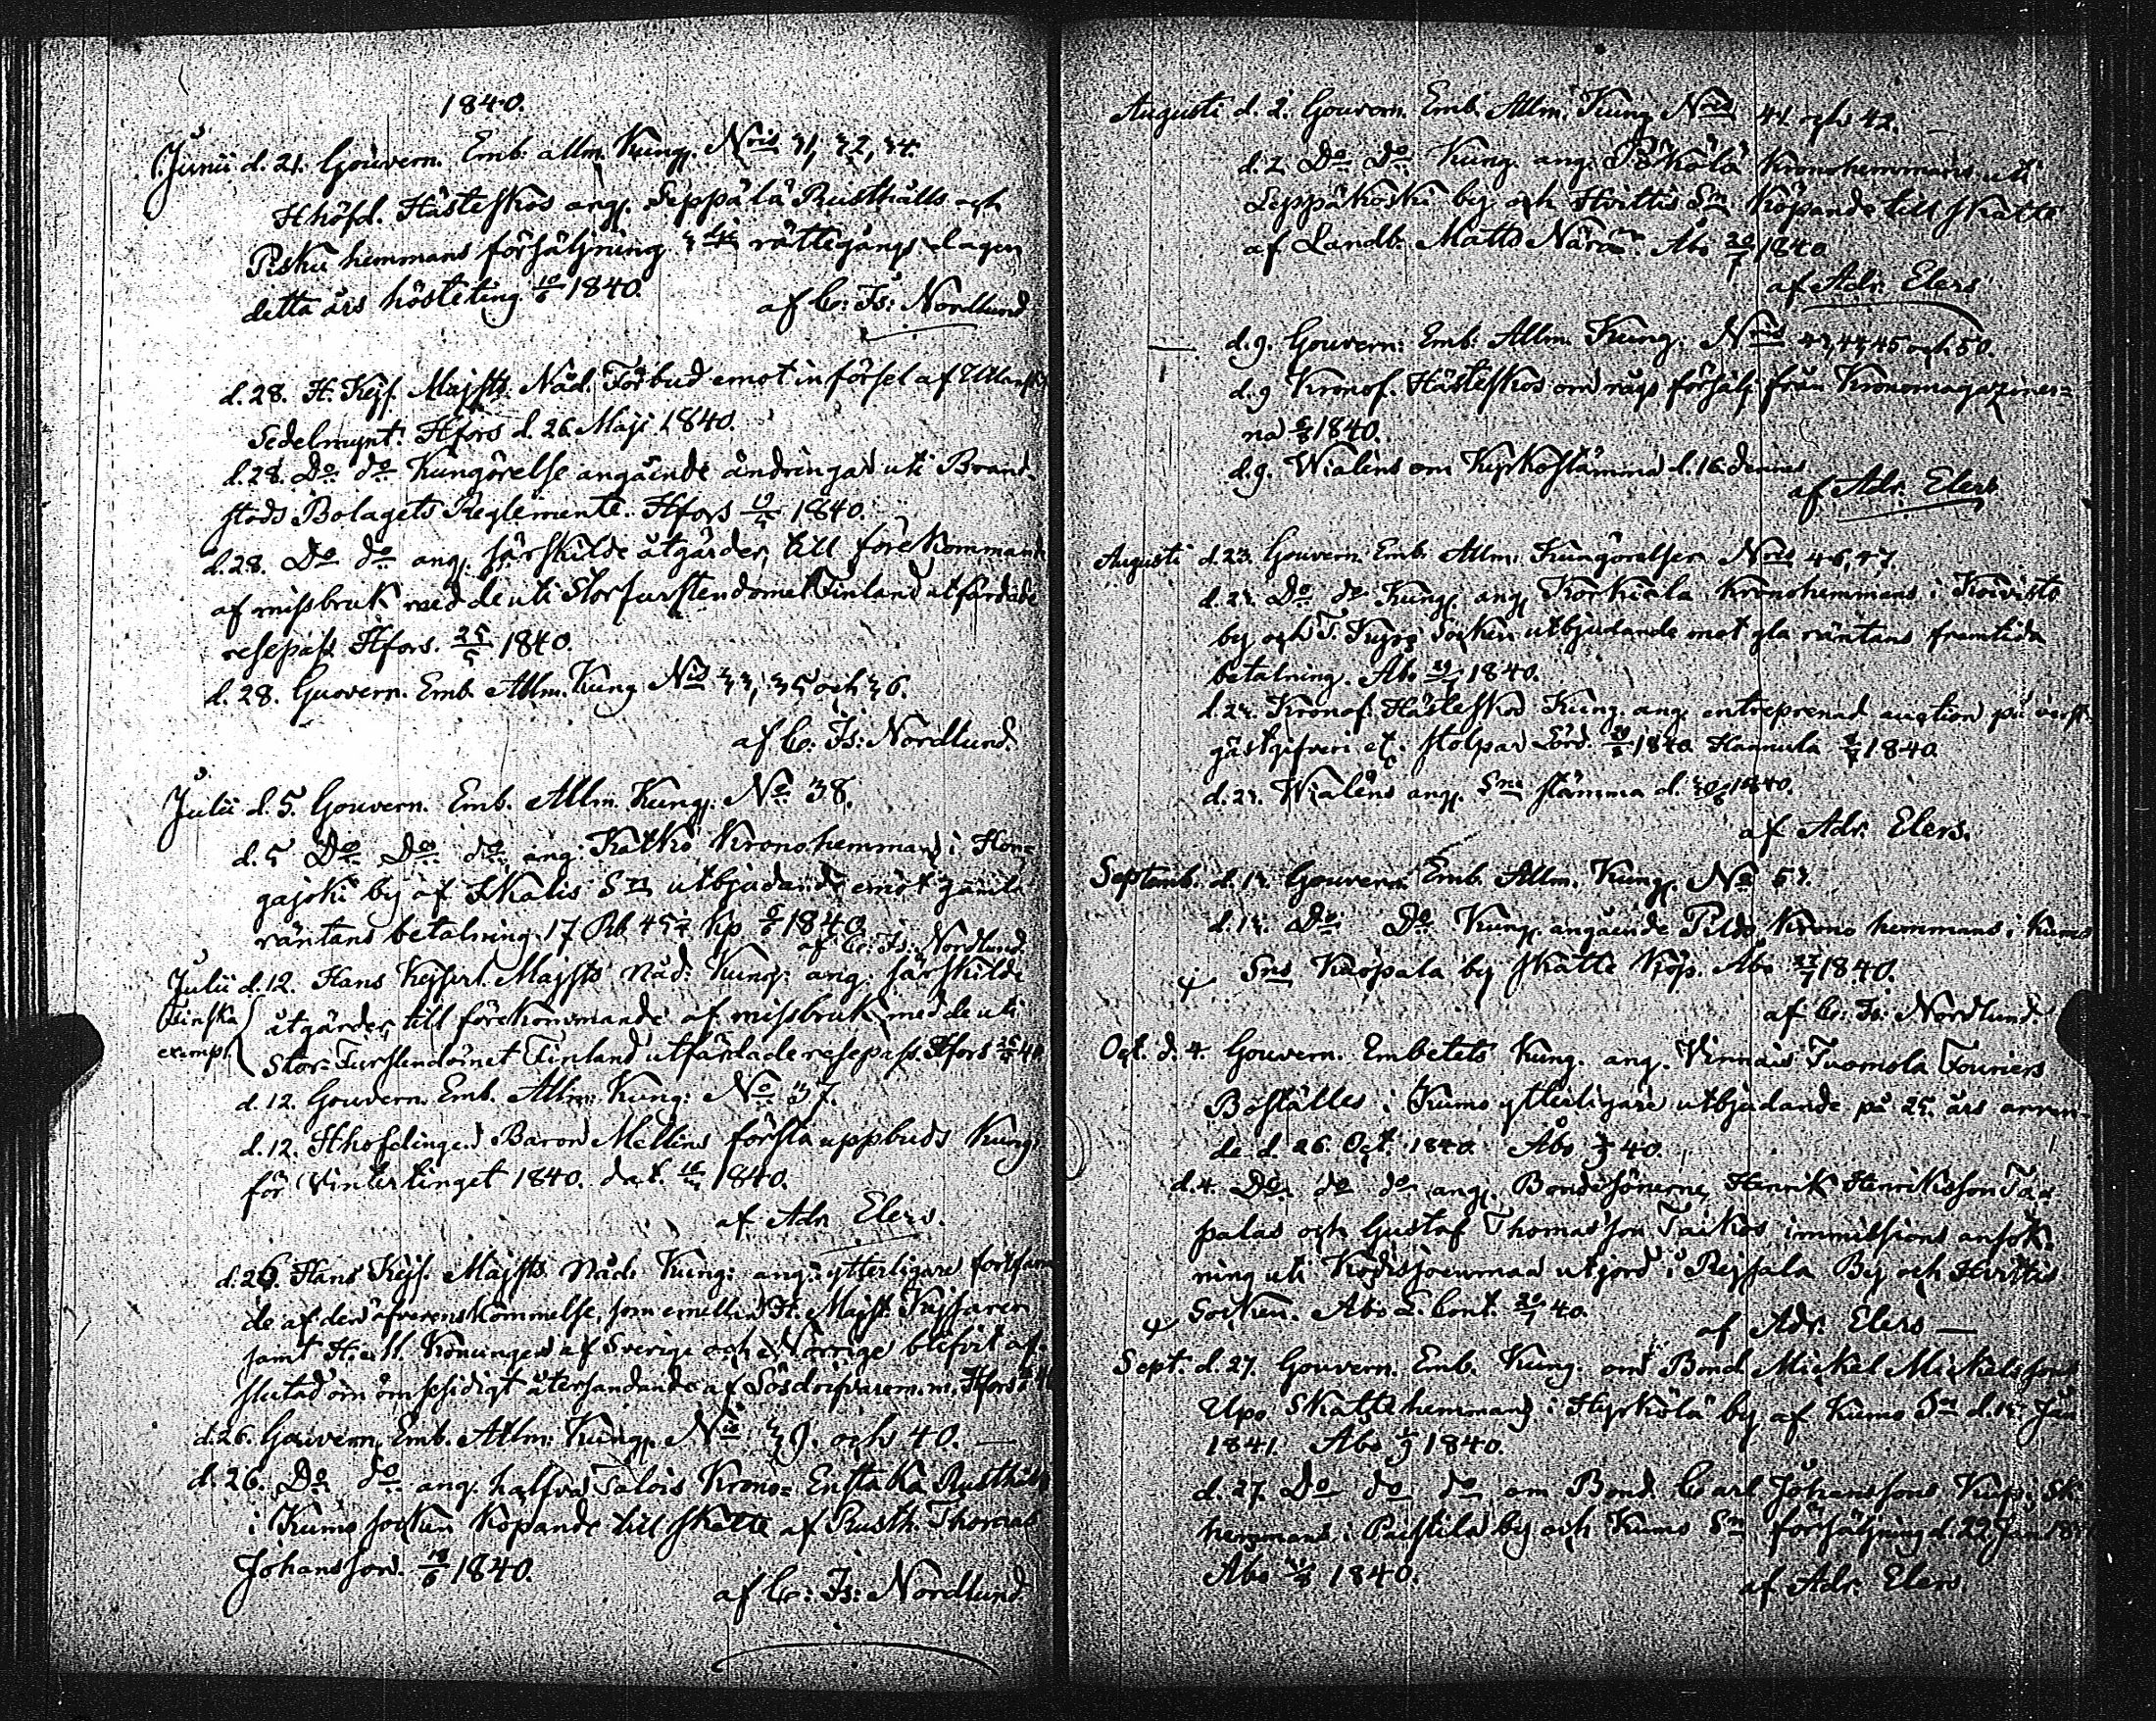 1840.
Junii d. 21. Gouvern. Emb. allm. Kung. Nris 31, 32, 34.
Hhöfd. Hästeskos ang. Seppälä Rusthålls och
Pisku hemmans försäljning 3die rättegångs dagen
detta års hösteting 10/6 1840.
af C: Fs: Nordlund
d. 28. H. Kejs. Majsts. Nåd. Förbud emot införsel af Utländskt
Sedelmynt. Hfors d. 26. Maji 1840.
d. 28. Do do Kungörelse angående ändringar uti Brand-
stods Bolagets Reglemente. Hfors 1840.
d. 28. Do do ang. särskilde åtgärder, till förekommande
af missbruk med de uti Storfurstendömet Finland utfärdade
resepass. Hfors. 25/5 1840.
d. 28. Guovern. Emb. Allm. Kung. Nis 33, 35 och 36.
af C: Fs: Nordlund.
Julii d. 5. Gouvern. Emb. Allm. Kung. No 38.
d. 5 Do Do do ang. Katko Kronohemmans i Hon-
gajoki by af Ikalis Sn utbjudande emot gamla
räntans betalning 17 Rb 45 Kp. 1840.
af C: Fs: Nordlund
Julii d. 12. Hans Kejserl. Majsts Nåd: Kung: ang: särskilde
Finska åtgärder till förekommande af missbruk med de uti
exempl. Stor-Furstendömet Finland utfärdade resepass. Hfors 25/5 40
d. 12. Gouvern. Emb. Allm: Kung: No 37.
d. 12. Hhöfdingen Baron Mellins första uppbuds Kung.
för Vintertinget 1840. dat. 1840.
af Adr. Elers.
d. 26. Hans Kejs. Majsts. Nåd. Kung: ang: ytterligare fortfaran
de af den öfverenskommelse, som emellan H. Majst. Kejsaren
samt H. M. Konungen af Sverige och Norrige blifvit af-
slutad om ömsesidigt återsändande af Lösdrifvare m. m. Hfors
d. 26. Gouvern. Emb. Allm: Kung. Nis 39. och 40.
d. 26. Do do ang. halfva Talois Krono- Enstaka Rusthåll
i Kumo socken köpande till skatte af Rusth. Thomas
Johansson. 1840.
af C: Fs: Nordlund.
Augusti d. 2. Gouvern. Emb. Allm. Kung. Nris 41. och 42.
d. 2. Do Do Kung. ang. Kronohemmans uti
Leppäkoski by och Hvittis Sn Köpande till skatte
af Landb. Matts Åbo 1840
af Adr. Elers
d. 9. Gouvern: Emb: Allm. Kung. Nris 43, 44, 45 och 50.
d. 9 Kronof. Hästeskos om rågs försälj: från Kronomagaziner-
na 1840.
d. 9. Wialéns om Kyrkostämma d. 16. dennes
af Adr. Elers
Augusti d. 23. Gouvern. Emb. Allm. Kungörelser Nris 46, 47.
d. 23. Do do Kung. ang. Korkiala Kronohemmans i Koivisto
by och T. Kyro Socken utbjudande mot gla räntans framtida
betalning. Åbo 1840.
d. 23. Kronof. Hästeskos Kung. ang. entreprenad auction på
gästgifveri etc. stolpar 1840. Hannula 1840.
d. 23. Wialéns ang. Sne stämma d. 30/8 1840.
af Adr. Elers.
Septemb. d. 13. Gouvern. Emb. Allm. Kung. No 53.
d. 13. Do Do Kung. angående Krono hemmans i Kumo
Sns Kaopala by skatte köp. Åbo 1840.
af C: Fs: Nordlund
Oct. d. 4. Gouvern. Embetets Kung. ang. Vinnais Tuomola Fouriers
Boställes i Kumo ytterligare utbjudande på 25. års arren-
de d. 26. Oct. 1840. Åbo 40.
d. 4. Do do do ang. Bondesönerne Henrik Henriksson
palas och Gustaf Thomasson immissions ansök-
ning uti utjord i By och Hvittis
Socken. Åbo L. Cont. 40.
af Adr. Elers
Sept d. 27. Gouvern. Emb. Kung. om Bond Mickel Mickelssons
Upo Skatte hemmans i by af Kumo Sn d. Jan
1841. Åbo 1840.
d. 27. Do do do om Bond. Carl Johanssons
hemmans i by och Kumo Sn försäljning d. 22. Jan
Åbo 1840.
af Adr. Elers.